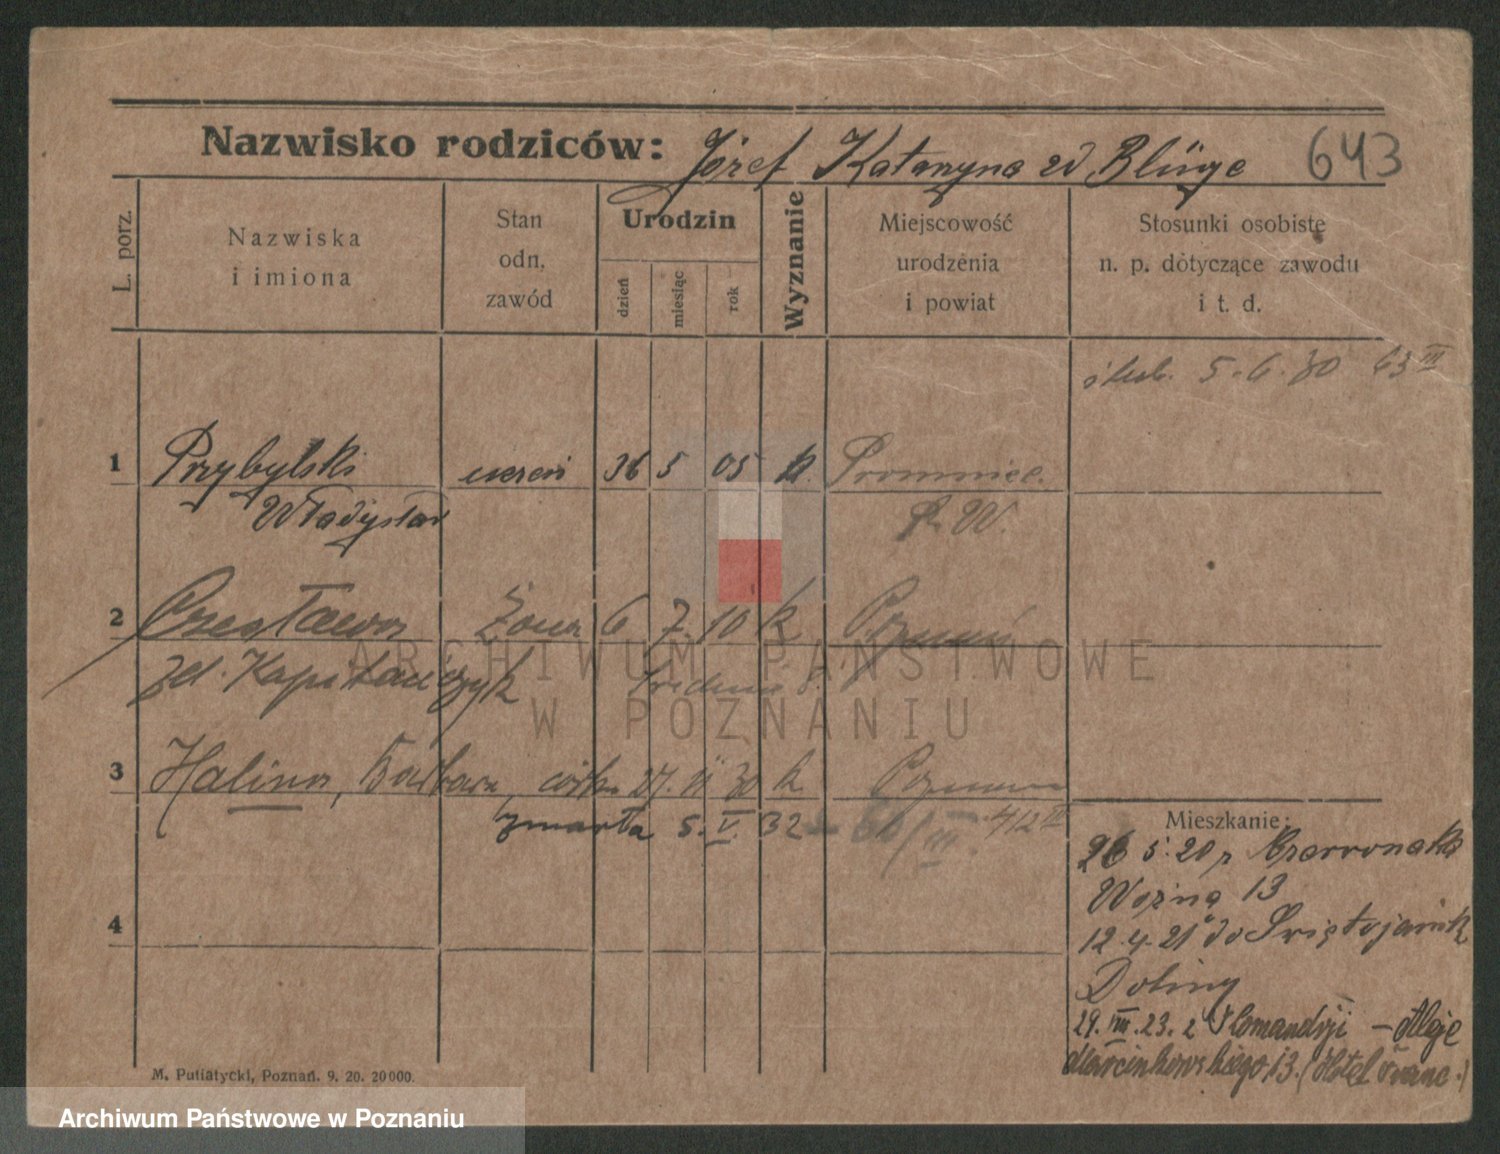 Nazwisko rodziców: Józef Katarzyna zd Blüge 643
L. porz.
Nazwiska i imiona
Stan odn. zawód
Urodzin
dzień
miesiąc
rok
Wyznanie
Miejscowość urodzenia i powiat
Stosunki osobiste n. p. dotyczące zawodu i t. d.
ślub. 5.6.30 63 III
1 Przybylski uczeń 5 05 k.
Władysław
2 Czesława żona 6 7. 10 k Poznań
zd. Kapitańczyk
ARCHIWUM PAŃSTWOWE
W POZNANIU
3 Halina, Barbara, córka 27. 30 k Poznań
zmarła 5. V. 32 412 III
Mieszkanie:
26 5. 20 z Czerwonak
Woźna 13
4
12.4.21 do Świętojańsk
Doliny
29. III. 23. z Komandorji – Aleje
Marcinkowskiego 13. (Hotel Franc.)
M. Putiatycki, Poznań. 9. 20. 20000.
Archiwum Państwowe w Poznaniu